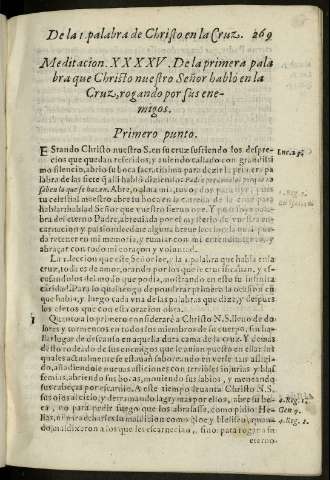 De la 1. palabra de Christo en la Cruz. 269
Meditacion. XXXXV. De la primera pala
bra que Christo nuestro Señor habló en la
Cruz, rogando por sus ene-
migos.
Primero punto.
EStando Christo nuestro S. en su cruz sufriendo los despre-
cios que quedan referidos, y auiendo callado con grandissi
mo silencio, abrio su boca sacratissima para dezir la primera pa
labra de las siete que alli habló diziendo: Padre perdonalos porque no
saben lo que se hazen. Abre, o alma mia, tus oydos
tu celestial maestro abre su boca en la catedra de la cruz para
hablar: habla Señor que vuestro sieruo oye.
del eterno Padre,
carnacion y passion leedme alguna breue leccion la qual pue-
da retener en mi memoria, y rumiar con mi entendimiento, y
abraçar con todo mi coraçon y voluntad.
La leccion que este Señor lee, y la 1. palabra que habla en la
cruz, toda es de amor, orando por los que le crucificauan, y es-
cusandolos del modo que podia, mostrando en esto su infinita
caridad. Para lo qual tengo de ponderar primero la ocasion en
que habla, y luego cada vna de las palabras que dize, y despues
los efetos que con esta oracion obra.
1 Quanto a lo primero considerarè a Christo N. S. lleno de do-
lores y tormentos en todos los miembros de su cuerpo, sin ha-
llar lugar de descanso en aquella dura cama de la cruz. Y demas
desto rodeado de sus enemigos que le auian puesto en ella: los
quales actualmente se estauan saboreando en verle tan afligi-
do, añadiendole nueuas afliciones con terribles injurias y blas
femias, abriendo sus bocas, mouiendo sus labios, y meneando
sus cabeças por escarnio. A este tiempo leuanta Christo N. S.
sus ojos al cielo, y derramando lagrymas por ellos, abre su bo-
ca, no para pedir fuego que los abrasasse, como pidio He-
lias, ni
do maldixeron a los que les escarnecian, sino para rogar a su
eterno
Luc. 23.
1. Reg. 3.
4. Reg. 1.
Gen 9.
4. Reg. 2.